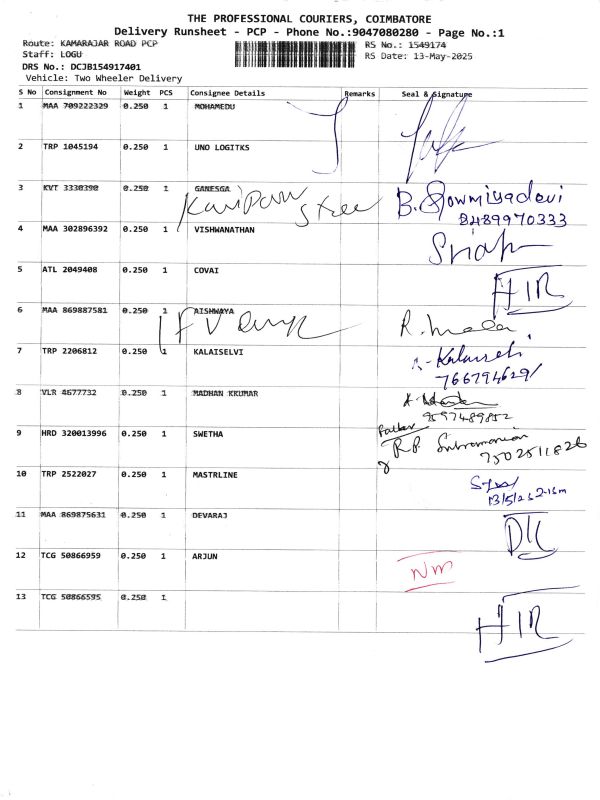 THE PROFESSIONAL COURIERS, COIMBATORE
Delivery Runsheet - PCP - Phone No.:9047080280 - Page No.:1
Route: KAMARAJAR ROAD PCP
Staff: LOGU
DRS No.: DCJB154917401
Vehicle: Two Wheeler Delivery
RS No.: 1549174
RS Date: 13-May-2025
S No Consignment No Weight PCS Consignee Details Remarks Seal & Signature
1 MAA 709222329 0.250 1 MOHAMEDU
2 TRP 1045194 0.250 1 UNO LOGITKS
3 KVT 3330390 0.250 1 GANESGA B. Sowmiyadevi
8489970333
4 MAA 302896392 0.250 1 VISHWANATHAN
5 ATL 2049408 0.250 1 COVAI HIR
6 MAA 869887581 0.250 1 AISHWAYA R. Mala
7 TRP 2206812 0.250 1 KALAISELVI Kalaiselvi
766794629/
8 VLR 4677732 0.250 1 MADHAN KKUMAR
9597489852
9 HRD 320013996 0.250 1 SWETHA Father
R.P. Subramanian
7502511826
10 TRP 2522027 0.250 1 MASTRLINE
13/5/25
11 MAA 869875631 0.250 1 DEVARAJ
12 TCG 50866959 0.250 1 ARJUN NM
13 TCG 50866595 0.250 1 HIR